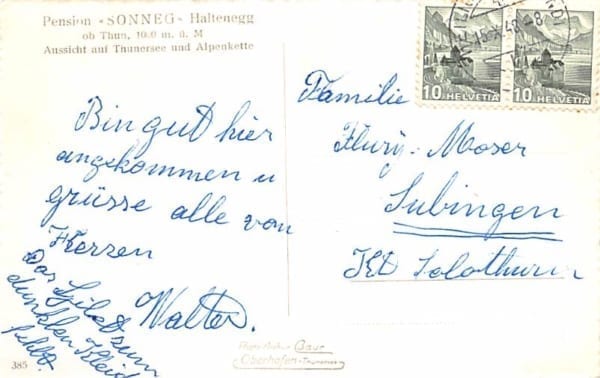 Pension «SONNEG» Haltenegg
ob Thun, 1000 m. ü. M
Aussicht auf Thunersee und Alpenkette
10 HELVETIA
10 HELVETIA
Familie
Flury-Moser
Subingen
Kt Solothurn
Bin gut hier
angekommen u
grüsse alle von
Herzen
Walter.
Das Gilet zum
dunklen Kleid
fehlt.
Baur
Oberhofen-Thunersee
385